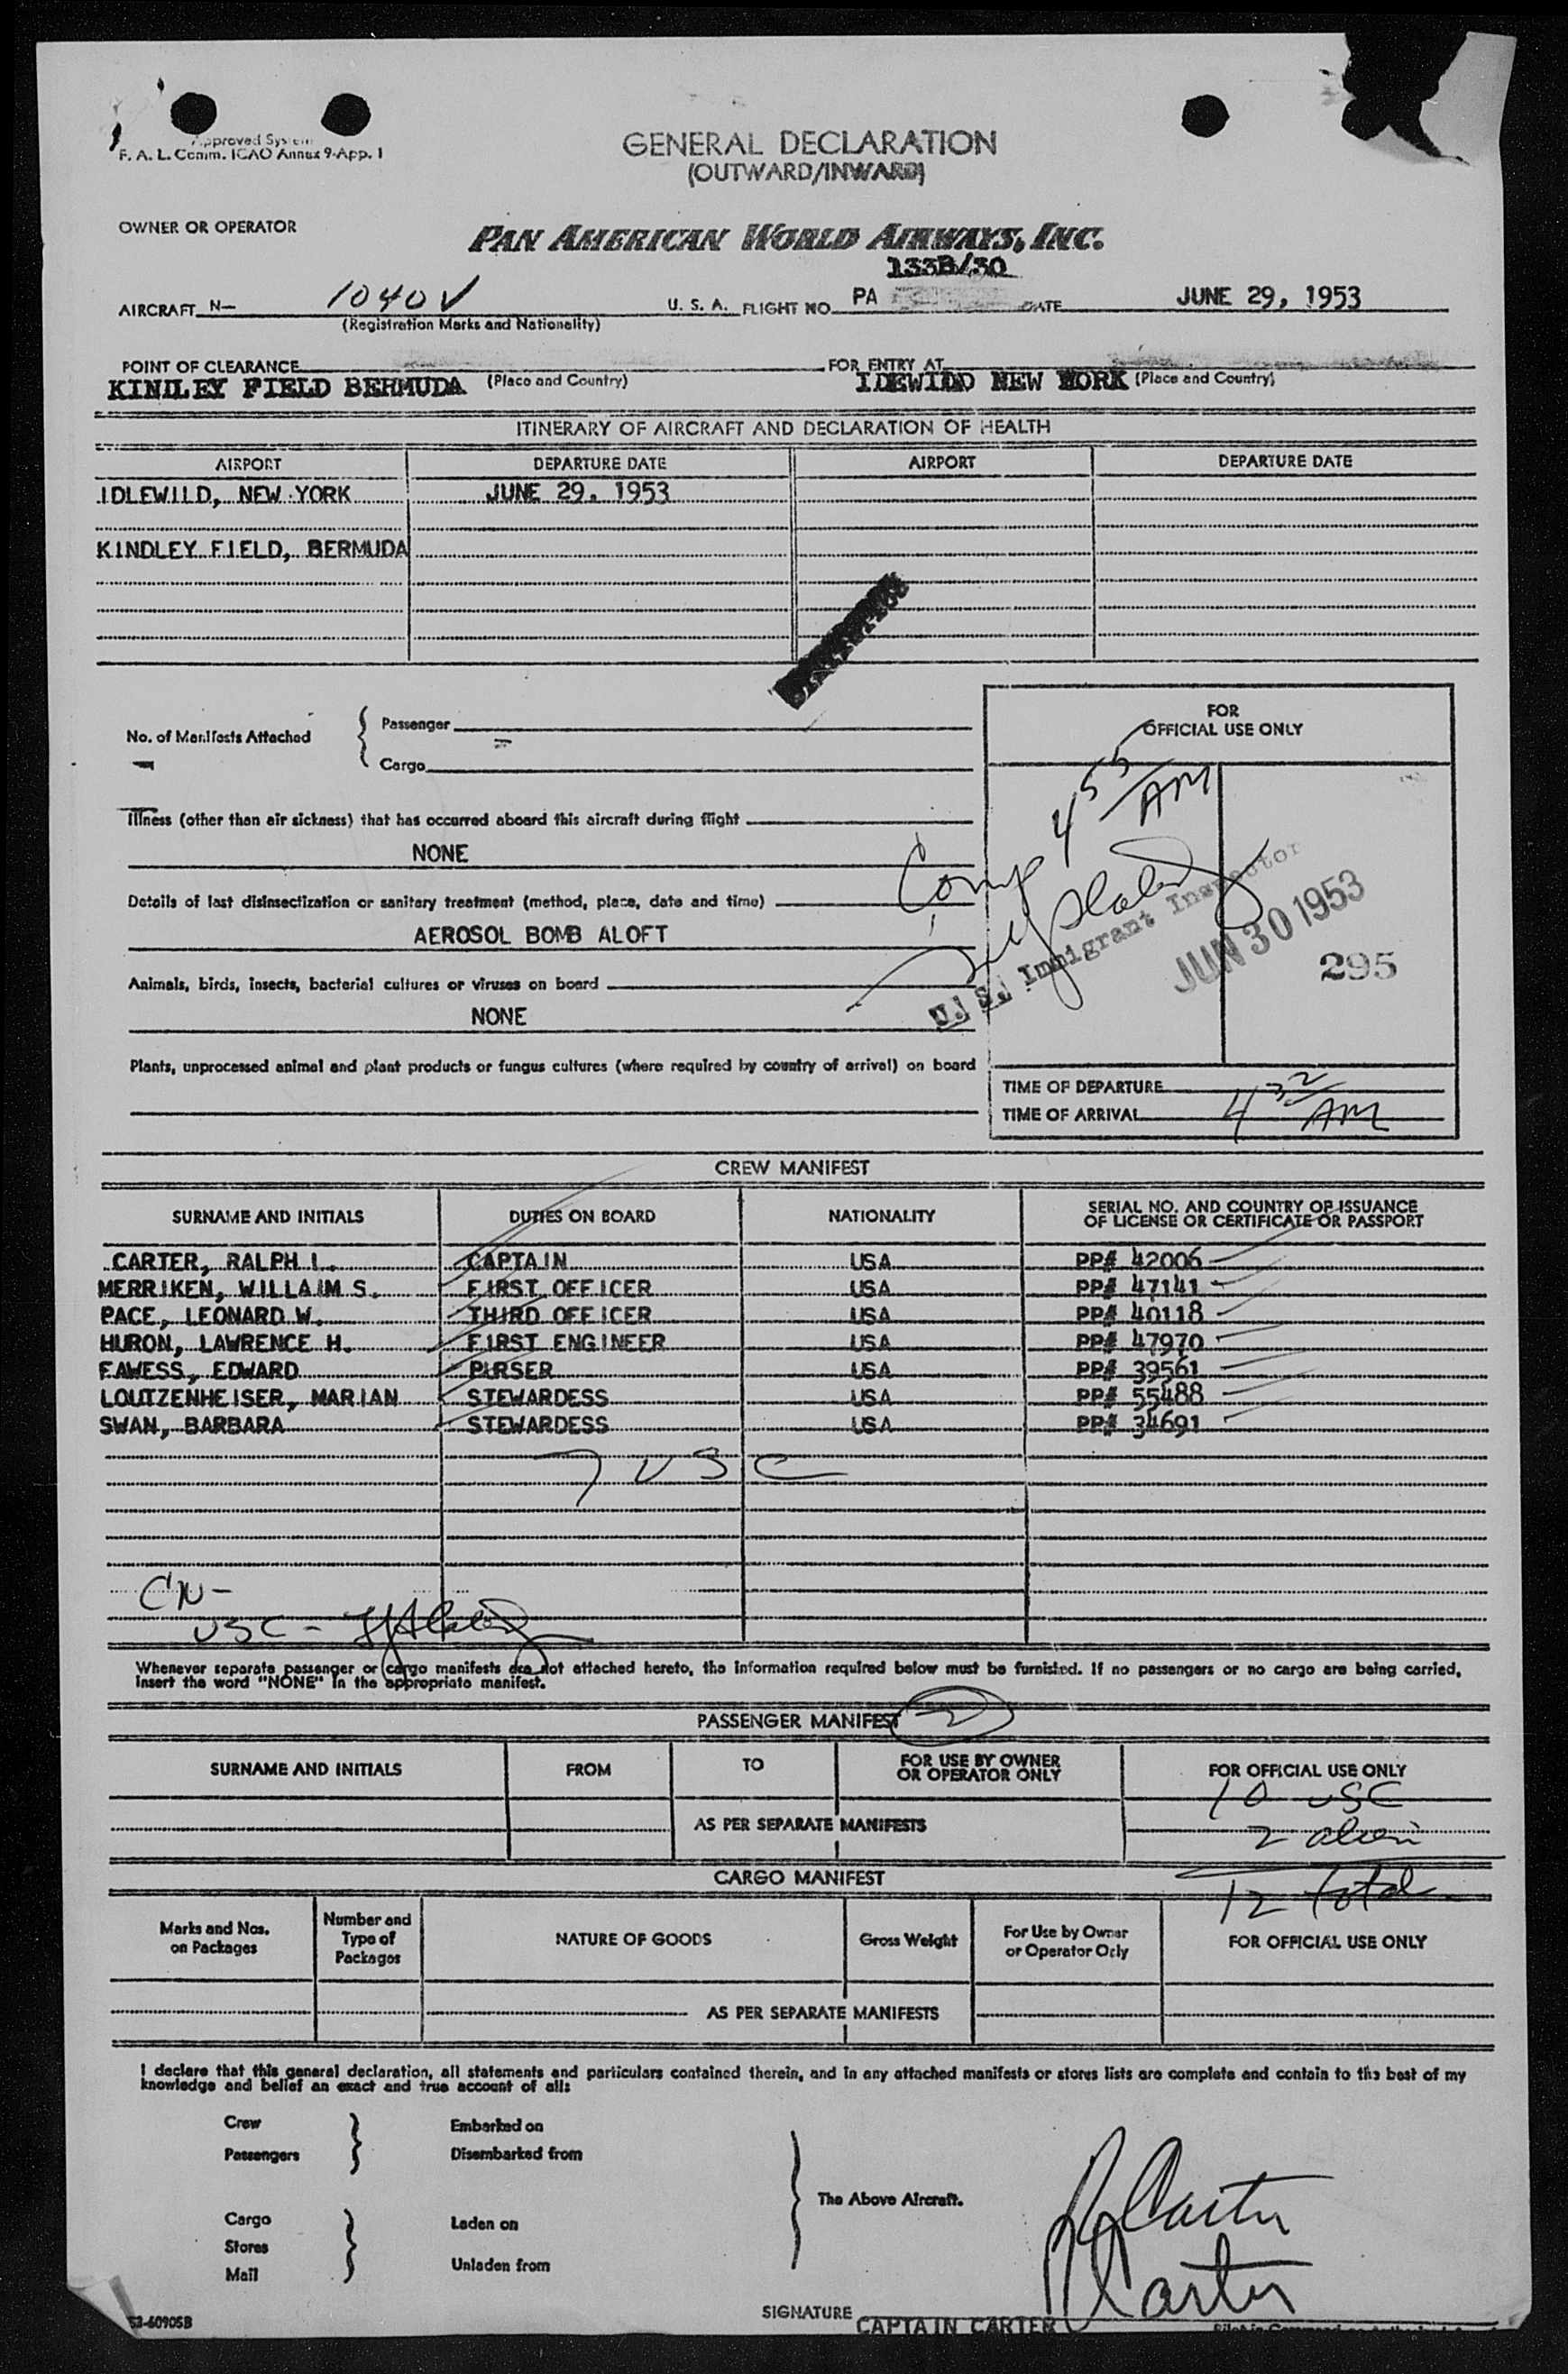 Approved System
F. A. L. Comm. ICAO Annex 9-App. 1
GENERAL DECLARATION
(OUTWARD/INWARD)
OWNER OR OPERATOR
PAN AMERICAN WORLD AIRWAYS, INC.
133B/30
AIRCRAFT N- 1040V U. S. A. FLIGHT NO. PA DATE JUNE 29, 1953
(Registration Marks and Nationality)
POINT OF CLEARANCE FOR ENTRY AT
KINDLEY FIELD BERMUDA (Place and Country) IDEWIDD NEW YORK (Place and Country)
ITINERARY OF AIRCRAFT AND DECLARATION OF HEALTH
AIRPORT DEPARTURE DATE AIRPORT DEPARTURE DATE
IDLEWILD, NEW YORK JUNE 29, 1953
KINDLEY FIELD, BERMUDA
No. of Manifests Attached
Passenger
Cargo
FOR
OFFICIAL USE ONLY
Illness (other than air sickness) that has occurred aboard this aircraft during flight
NONE
Comp 4 55 AM
Details of last disinsectization or sanitary treatment (method, place, date and time)
AEROSOL BOMB ALOFT
U. S. Immigrant Inspector
JUN 30 1953
295
Animals, birds, insects, bacterial cultures or viruses on board
NONE
Plants, unprocessed animal and plant products or fungus cultures (where required by country of arrival) on board
TIME OF DEPARTURE
TIME OF ARRIVAL 4 32 AM
CREW MANIFEST
SURNAME AND INITIALS DUTIES ON BOARD NATIONALITY SERIAL NO. AND COUNTRY OF ISSUANCE OF LICENSE OR CERTIFICATE OR PASSPORT
CARTER, RALPH L. CAPTAIN USA PP# 42006
MERRIKEN, WILLAIM S. FIRST OFFICER USA PP# 47141
PACE, LEONARD W. THIRD OFFICER USA PP# 40118
HURON, LAWRENCE H. FIRST ENGINEER USA PP# 47970
EAWESS, EDWARD PURSER USA PP# 39561
LOUTZENHEISER, MARIAN STEWARDESS USA PP# 55488
SWAN, BARBARA STEWARDESS USA PP# 34691
7 USC
CN-
USC -
Whenever separate passenger or cargo manifests are not attached hereto, the information required below must be furnished. If no passengers or no cargo are being carried,
insert the word "NONE" in the appropriate manifest.
PASSENGER MANIFEST 2
SURNAME AND INITIALS FROM TO FOR USE BY OWNER OR OPERATOR ONLY FOR OFFICIAL USE ONLY
10 USC
AS PER SEPARATE MANIFESTS
2 alien
CARGO MANIFEST
12 total
Marks and Nos. on Packages Number and Type of Packages NATURE OF GOODS Gross Weight For Use by Owner or Operator Only FOR OFFICIAL USE ONLY
AS PER SEPARATE MANIFESTS
I declare that this general declaration, all statements and particulars contained therein, and in any attached manifests or stores lists are complete and contain to the best of my
knowledge and belief an exact and true account of all:
Crew Embarked on
Passengers Disembarked from
The Above Aircraft.
Cargo Laden on
Stores
Mail Unladen from
R L Carter
Carter
SIGNATURE CAPTAIN CARTER
53-60905B